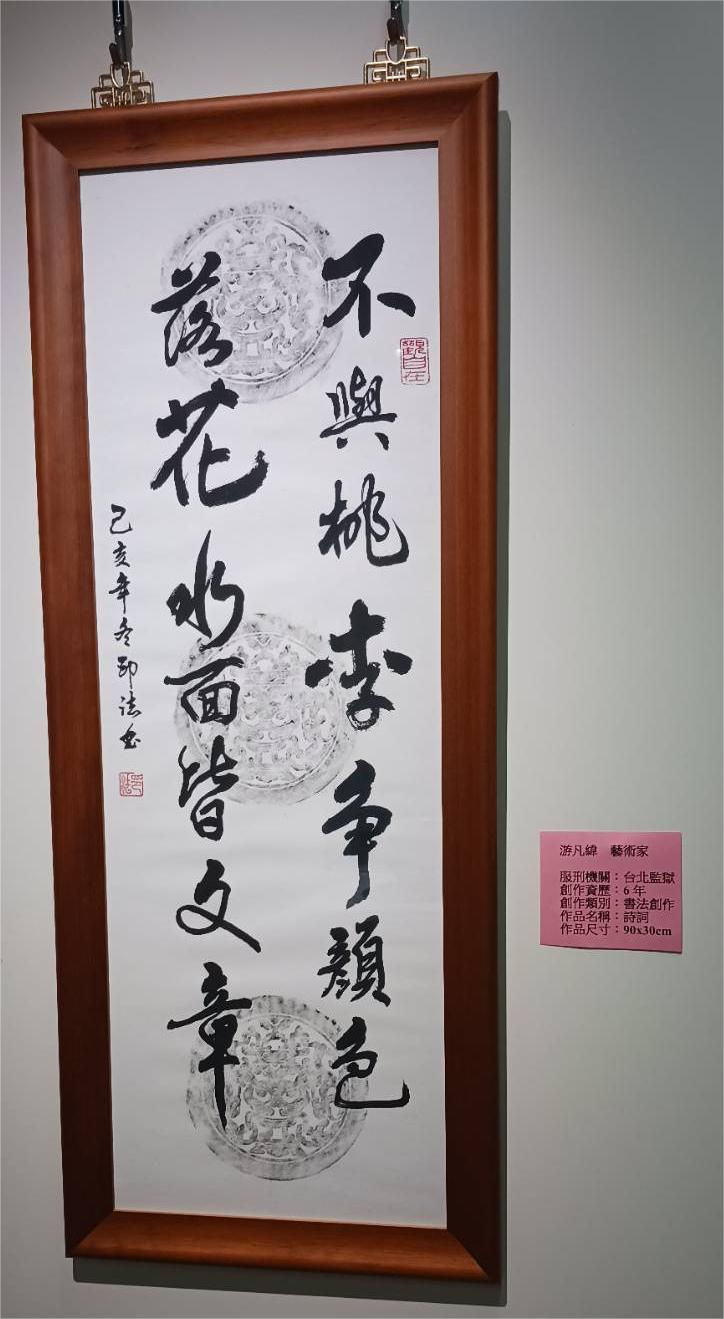 不與桃李爭顏色
落花水面皆文章
己亥年冬印法書
觀自在
印法
游凡緯 藝術家
服刑機關：台北監獄
創作資歷：6 年
創作類別：書法創作
作品名稱：詩詞
作品尺寸：90x30cm